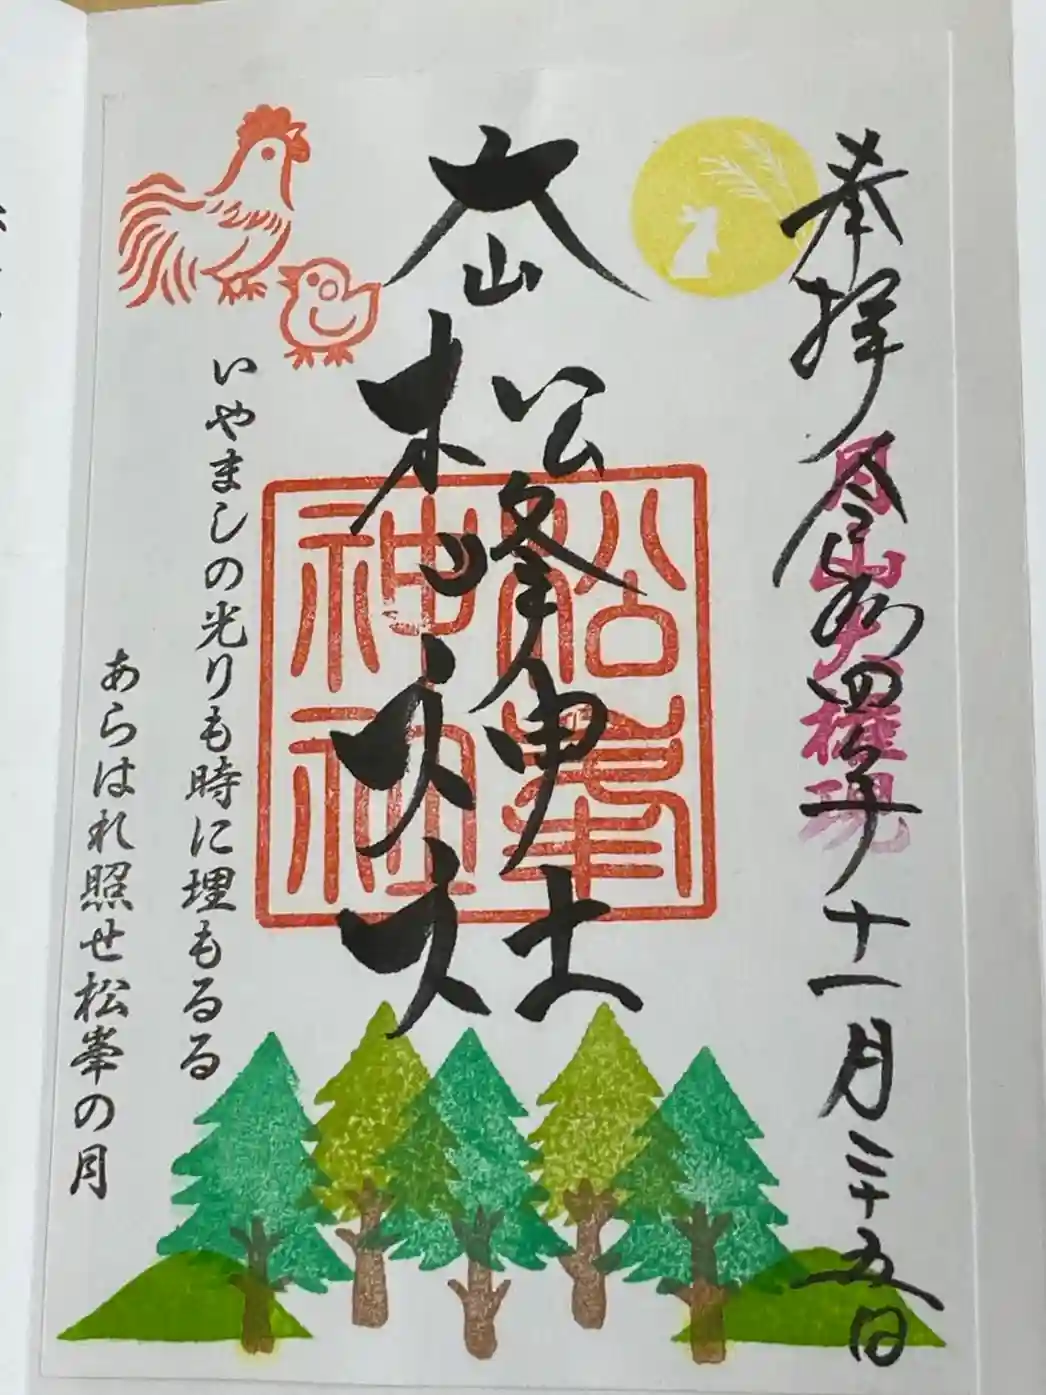 奉拝
月山大権現
令和四年十一月二十五日
大山
松峰神社
松峯
神社
いやましの光りも時に埋もるる
あらはれ照せ松峯の月